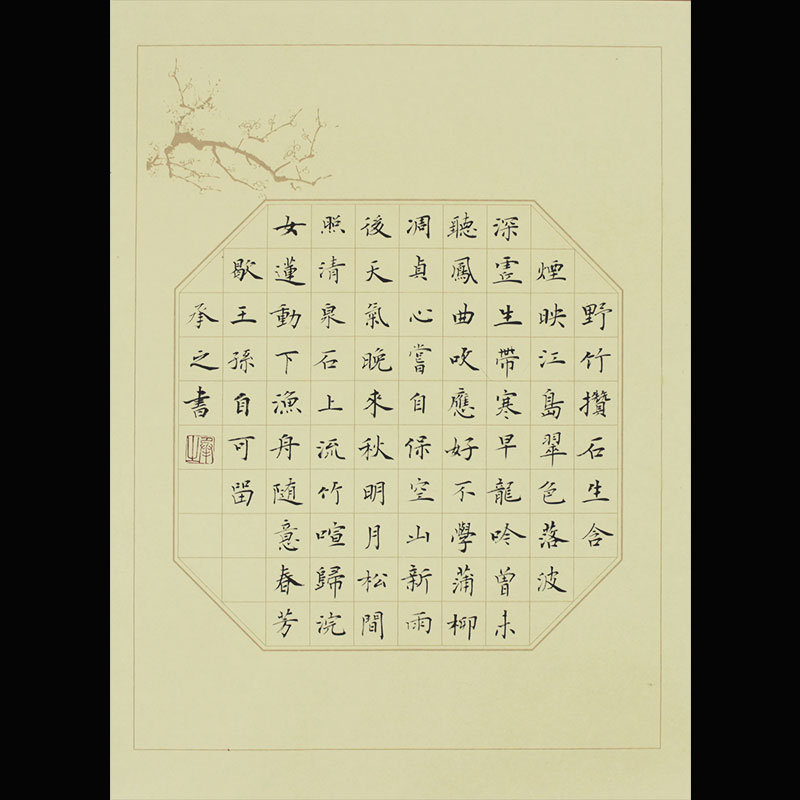 野竹攢石生含
煙映江島翠色落波
深霊生帶寒早龍吟曾未
聽鳳曲吹應好不學蒲柳
凋貞心嘗自保空山新雨
後天氣晚來秋明月松間
照清泉石上流竹喧歸浣
女蓮動下漁舟随意春芳
歇王孫自可留
承之書